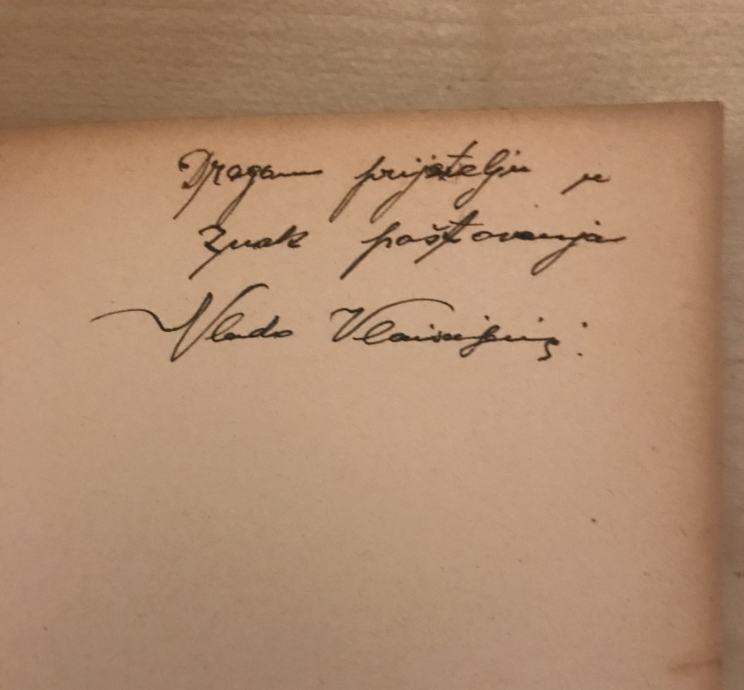 Dragom prijatelju u
znak poštovanja
Vlado